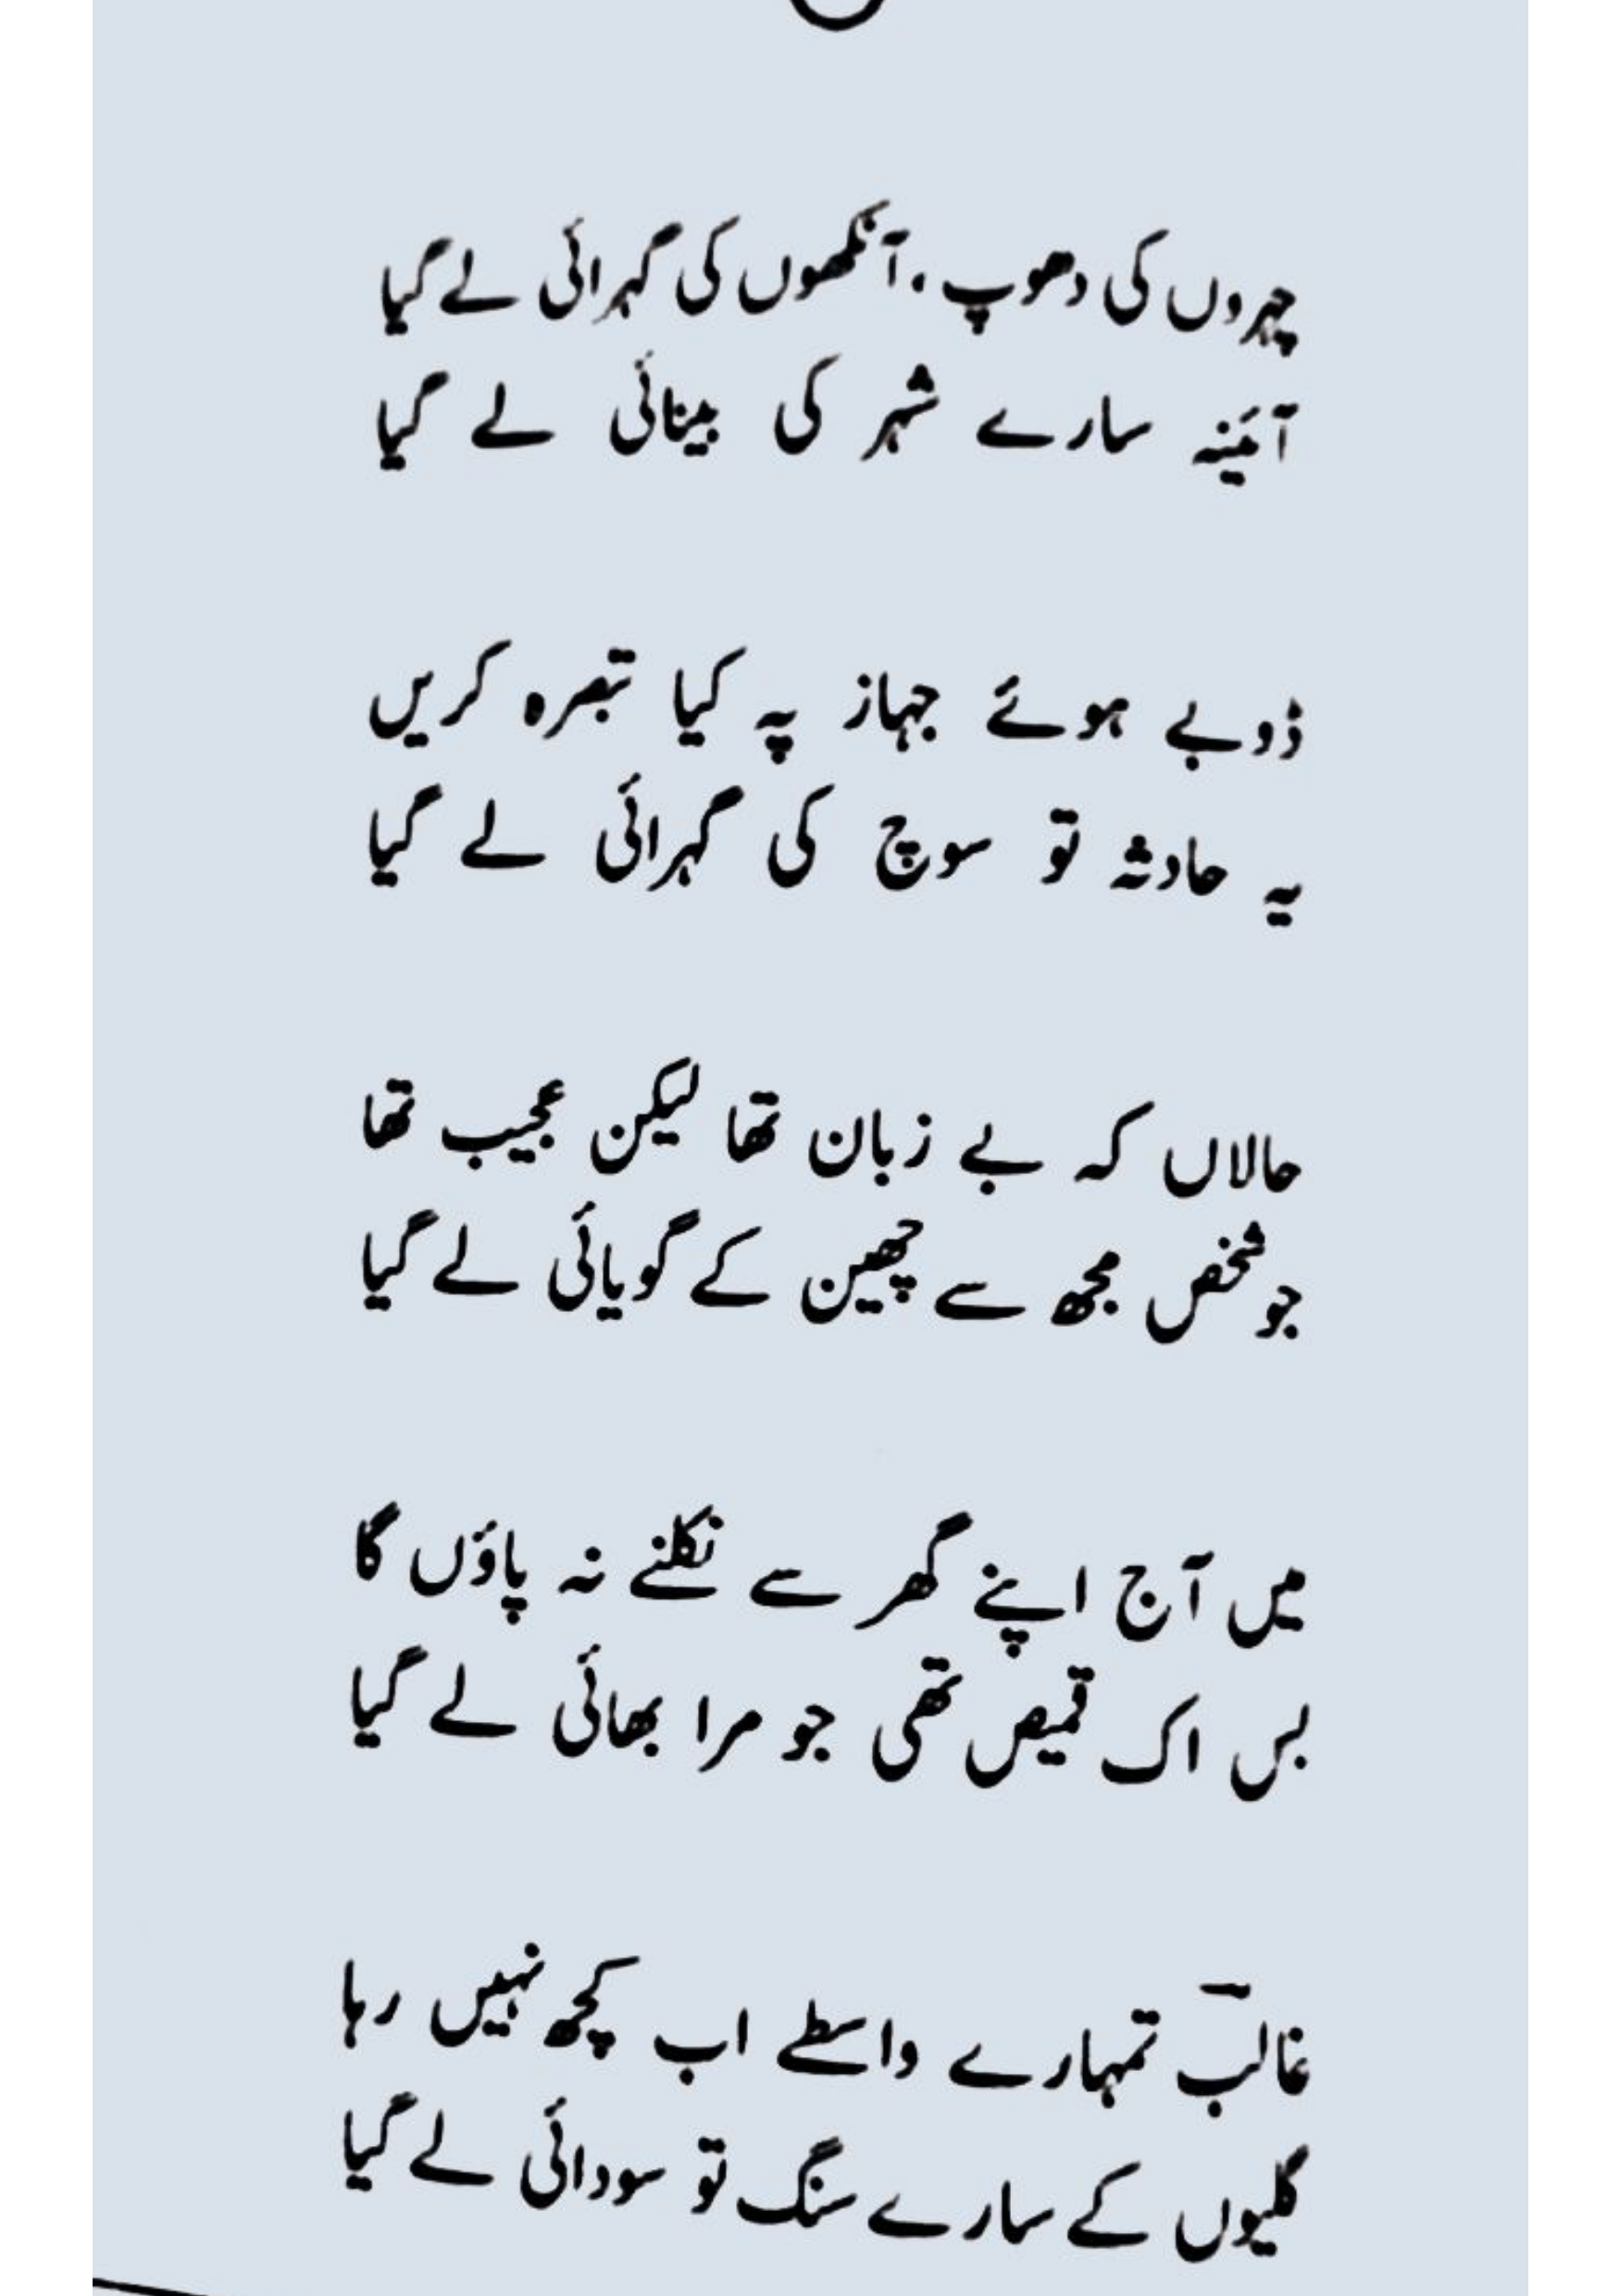 چہروں کی دھوپ، آنکھوں کی گہرائی لے گیا
آئینہ سارے شہر کی بینائی لے گیا
ڈوبے ہوئے جہاز پہ کیا تبصرہ کریں
یہ حادثہ تو سوچ کی گہرائی لے گیا
حالاں کہ بے زبان تھا لیکن عجیب تھا
جو شخص مجھ سے چھین کے گویائی لے گیا
میں آج اپنے گھر سے نکلنے نہ پاؤں گا
بس اک قمیص تھی جو مرا بھائی لے گیا
غالبؔ تمہارے واسطے اب کچھ نہیں رہا
گلیوں کے سارے سنگ تو سودائی لے گیا